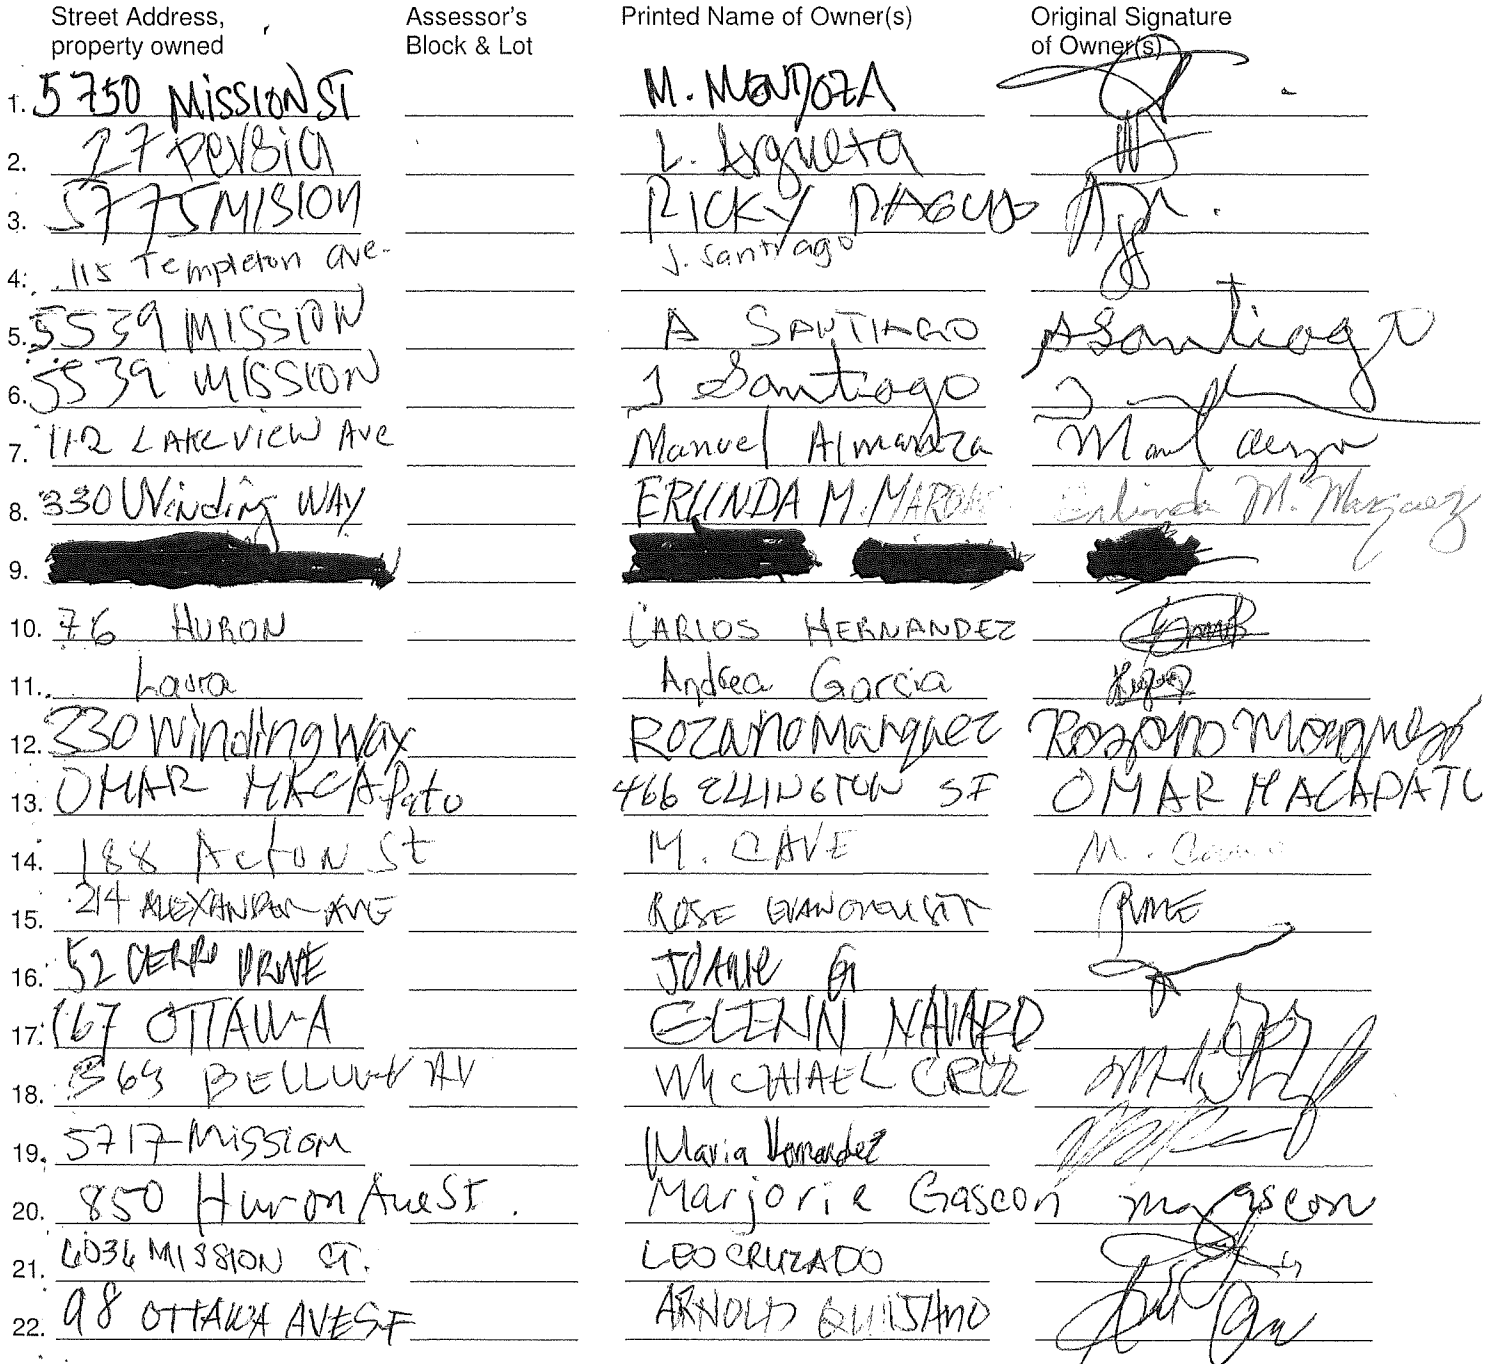 Street Address, Assessor's Printed Name of Owner(s) Original Signature
property owned Block & Lot of Owner(s)
1. 5750 MISSION ST M. MENDOZA
2. 27 Persia L. Argueta
3. 5775 MISION RICKY
4. 115 Templeton ave. J. Santiago
5. 5539 MISSION A SANTIAGO ASantiago
6. 5539 MISSION J Santiago
7. 112 LAKEVIEW Ave Manuel Almanza
8. 330 Winding WAY ERLINDA M. Erlinda M. Marquez
9.
10. 76 HURON CARLOS HERNANDEZ
11. Laura Andrea Garcia
12. 330 Winding Way Rozano Marquez Rozano Marquez
13. OMAR MACAPato 466 ELLINGTON SF OMAR MACAPATO
14. 188 Acton St M. CAVE M.
15. 214 ALEXANDER AVE ROSE
16. 52 CERRO DRIVE G
17. 167 OTTAWA GLENN NAVARO
18. AV MICHAEL CRUZ
19. 5717 Mission Maria Hernandez
20. 850 Huron Ave St. Marjorie Gascon mgascon
21. 6036 MISSION ST. LEO CRUZADO
22. 98 OTTAWA AVE SF ARNOLD QUIJANO